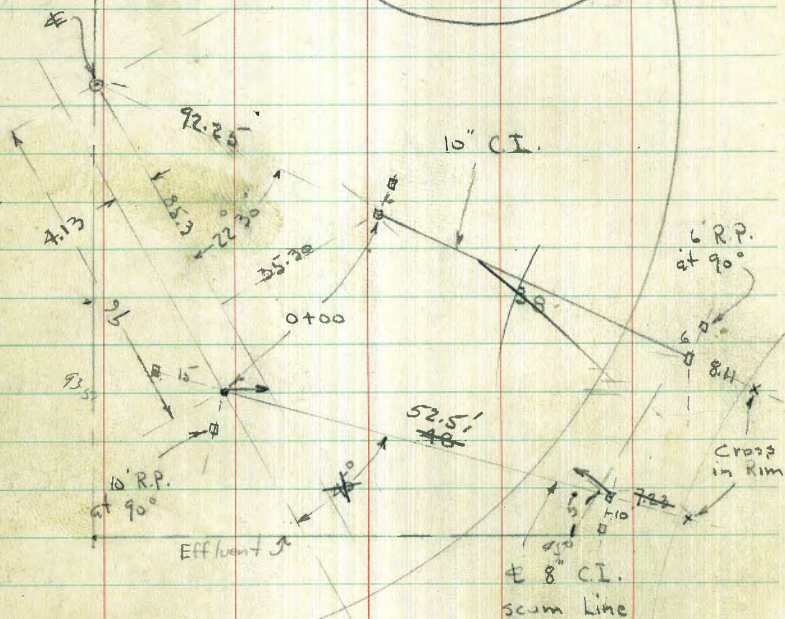 ℄
92.25
10" C.I.
4.13
85.3
22°30'
35.30
6' R.P.
at 90°
0+00
38
6
8.11
95
15
93.50
52.5'
48
Cross
in Rim
10' R.P.
at 90°
45°
7.23
5
+10
Effluent
45°
℄ 8" C.I.
scum Line